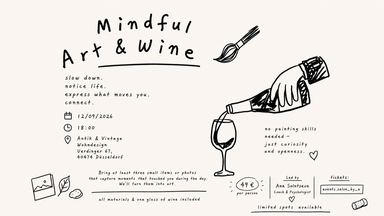 Mindful
Art & Wine
slow down.
notice life.
express what moves you.
connect.
12/09/2026
18:00
Antik & Vintage
Wohndesign
Verdiger Str. 61,
40474 Düsseldorf
no painting skills
needed –
just curiosity
and openness.
Bring at least three small items or photos
that capture moments that touched you during the day.
We'll turn them into art.
all materials & one glass of wine included
49 €
per person
Led by
Ana
Coach & Psychologist
tickets:
limited spots available